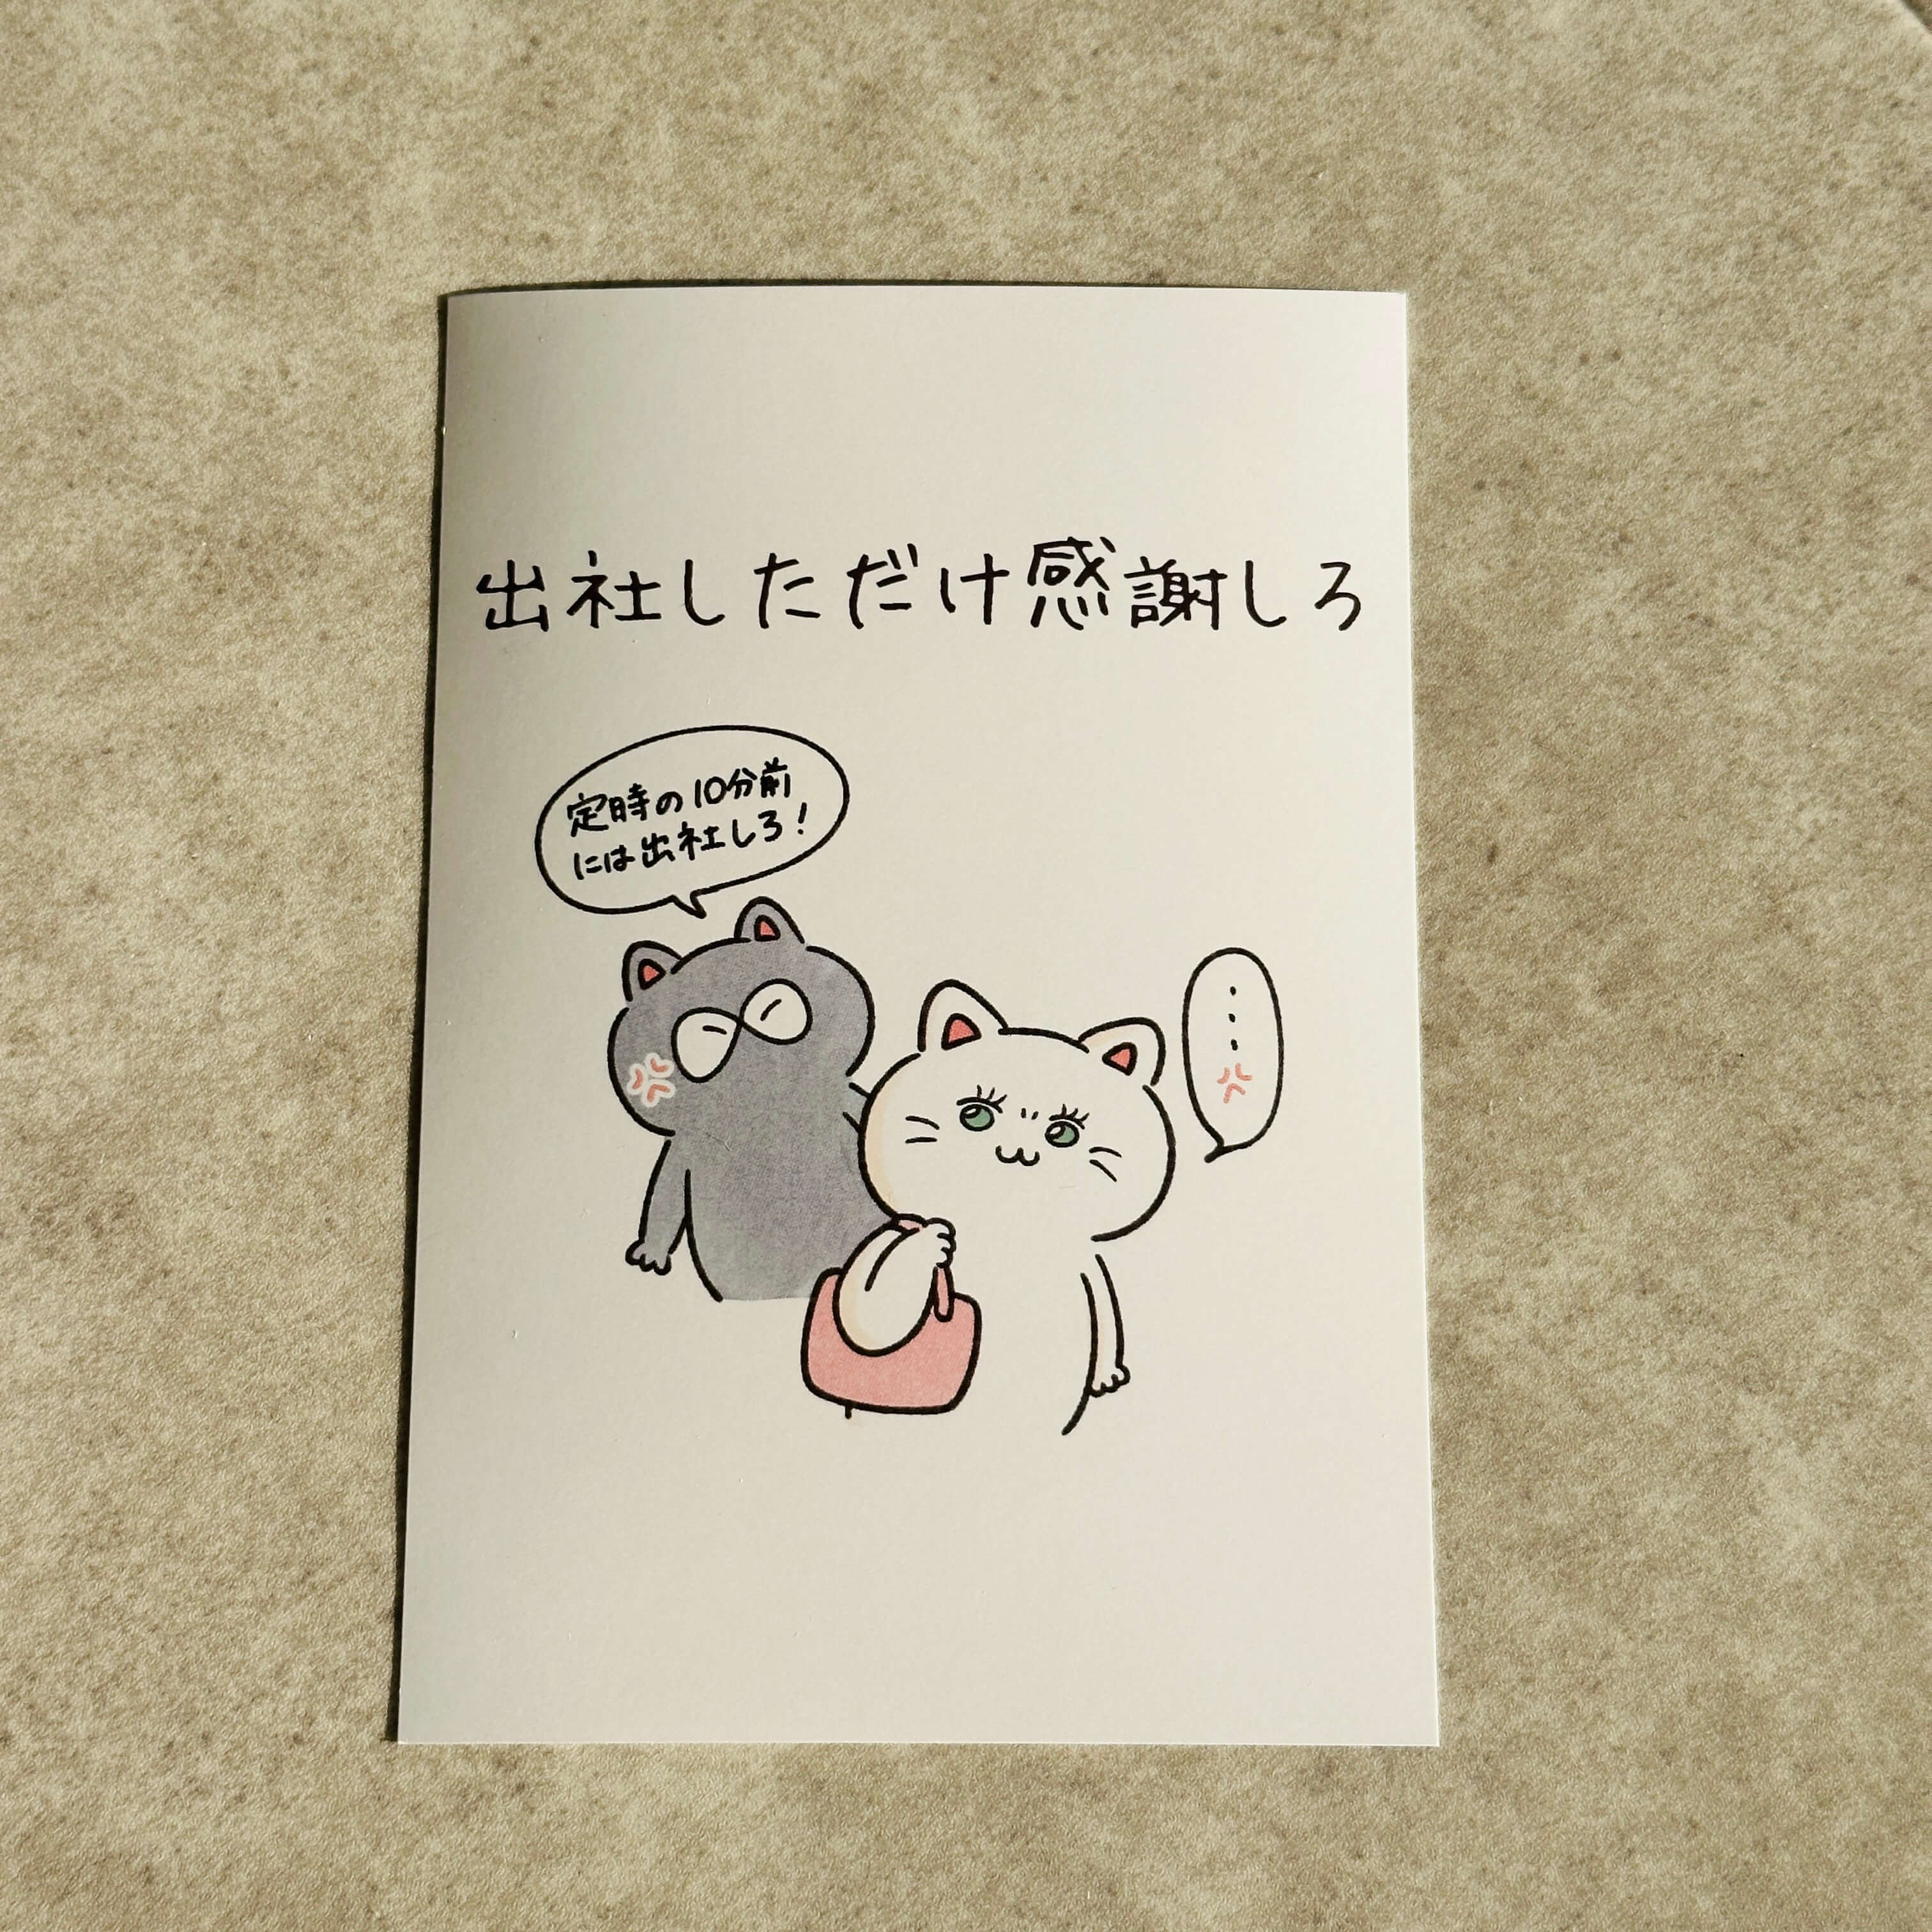 出社しただけ感謝しろ
定時の10分前
には出社しろ!
....